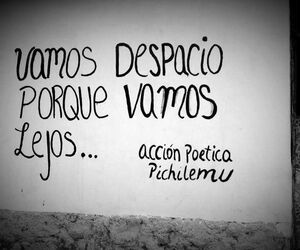 VAMOS DESPACIO
PORQUE VAMOS
Lejos...
acción Poetica
Pichilemu